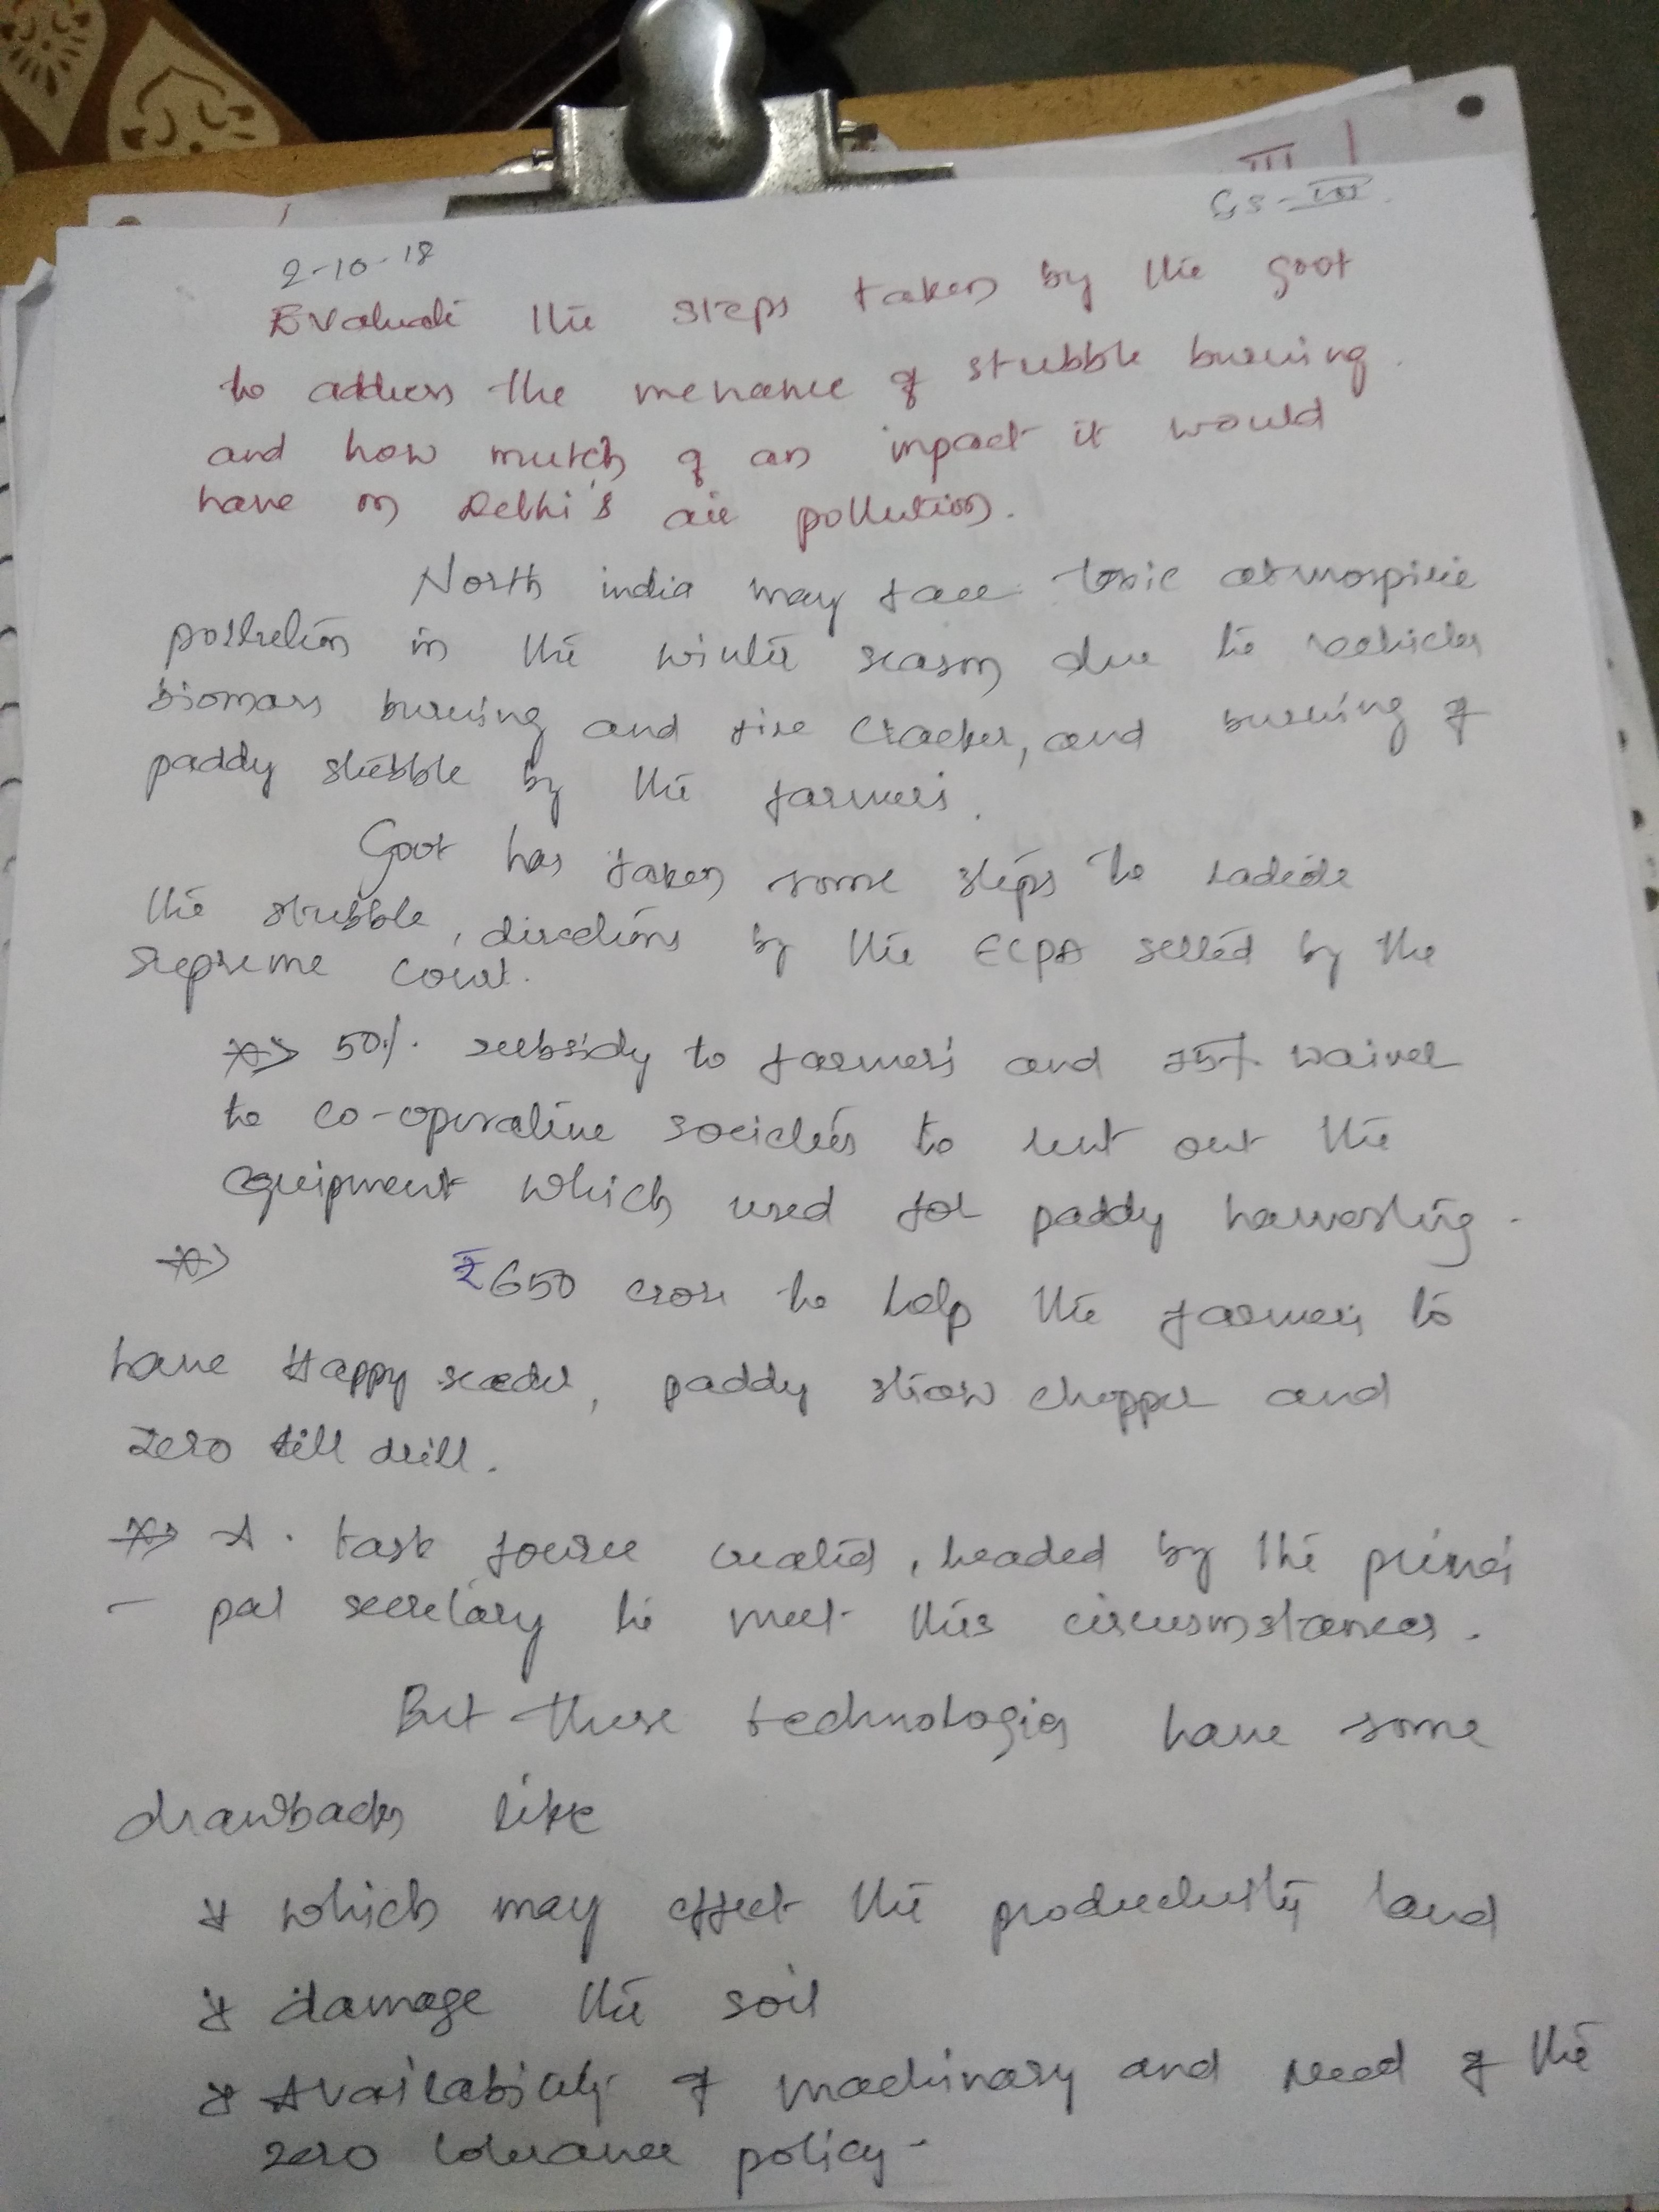 III
GS-III
2-10-18
Evaluate the steps taken by the govt
to address the menance of stubble burning.
and how mutch of an impact it would
have on Delhi's air pollution.
North india may face toxic atmospiric
pollution in the winter season due to vechicles
biomass burning and fire cracker, and burning of
paddy stubble by the farmers.
Govt has taken some steps to
the stubble, directions by the ECPA setted by the
Supreme Court.
50%. subsidy to farmers and 75% waiver
to co-operative societies to rent out the
equipment which used for paddy harvesting.
₹650 crore to help the farmers to
have Happy seeder, paddy straw chopper and
zero till drill.
A. task fource created, headed by the princi
- pal secretary to meet this circusmstances.
But these technologies have some
drawbacks like
* which may effect the productivity land
* damage the soil
* Availability of machinary and need of the
zero tolerance policy-